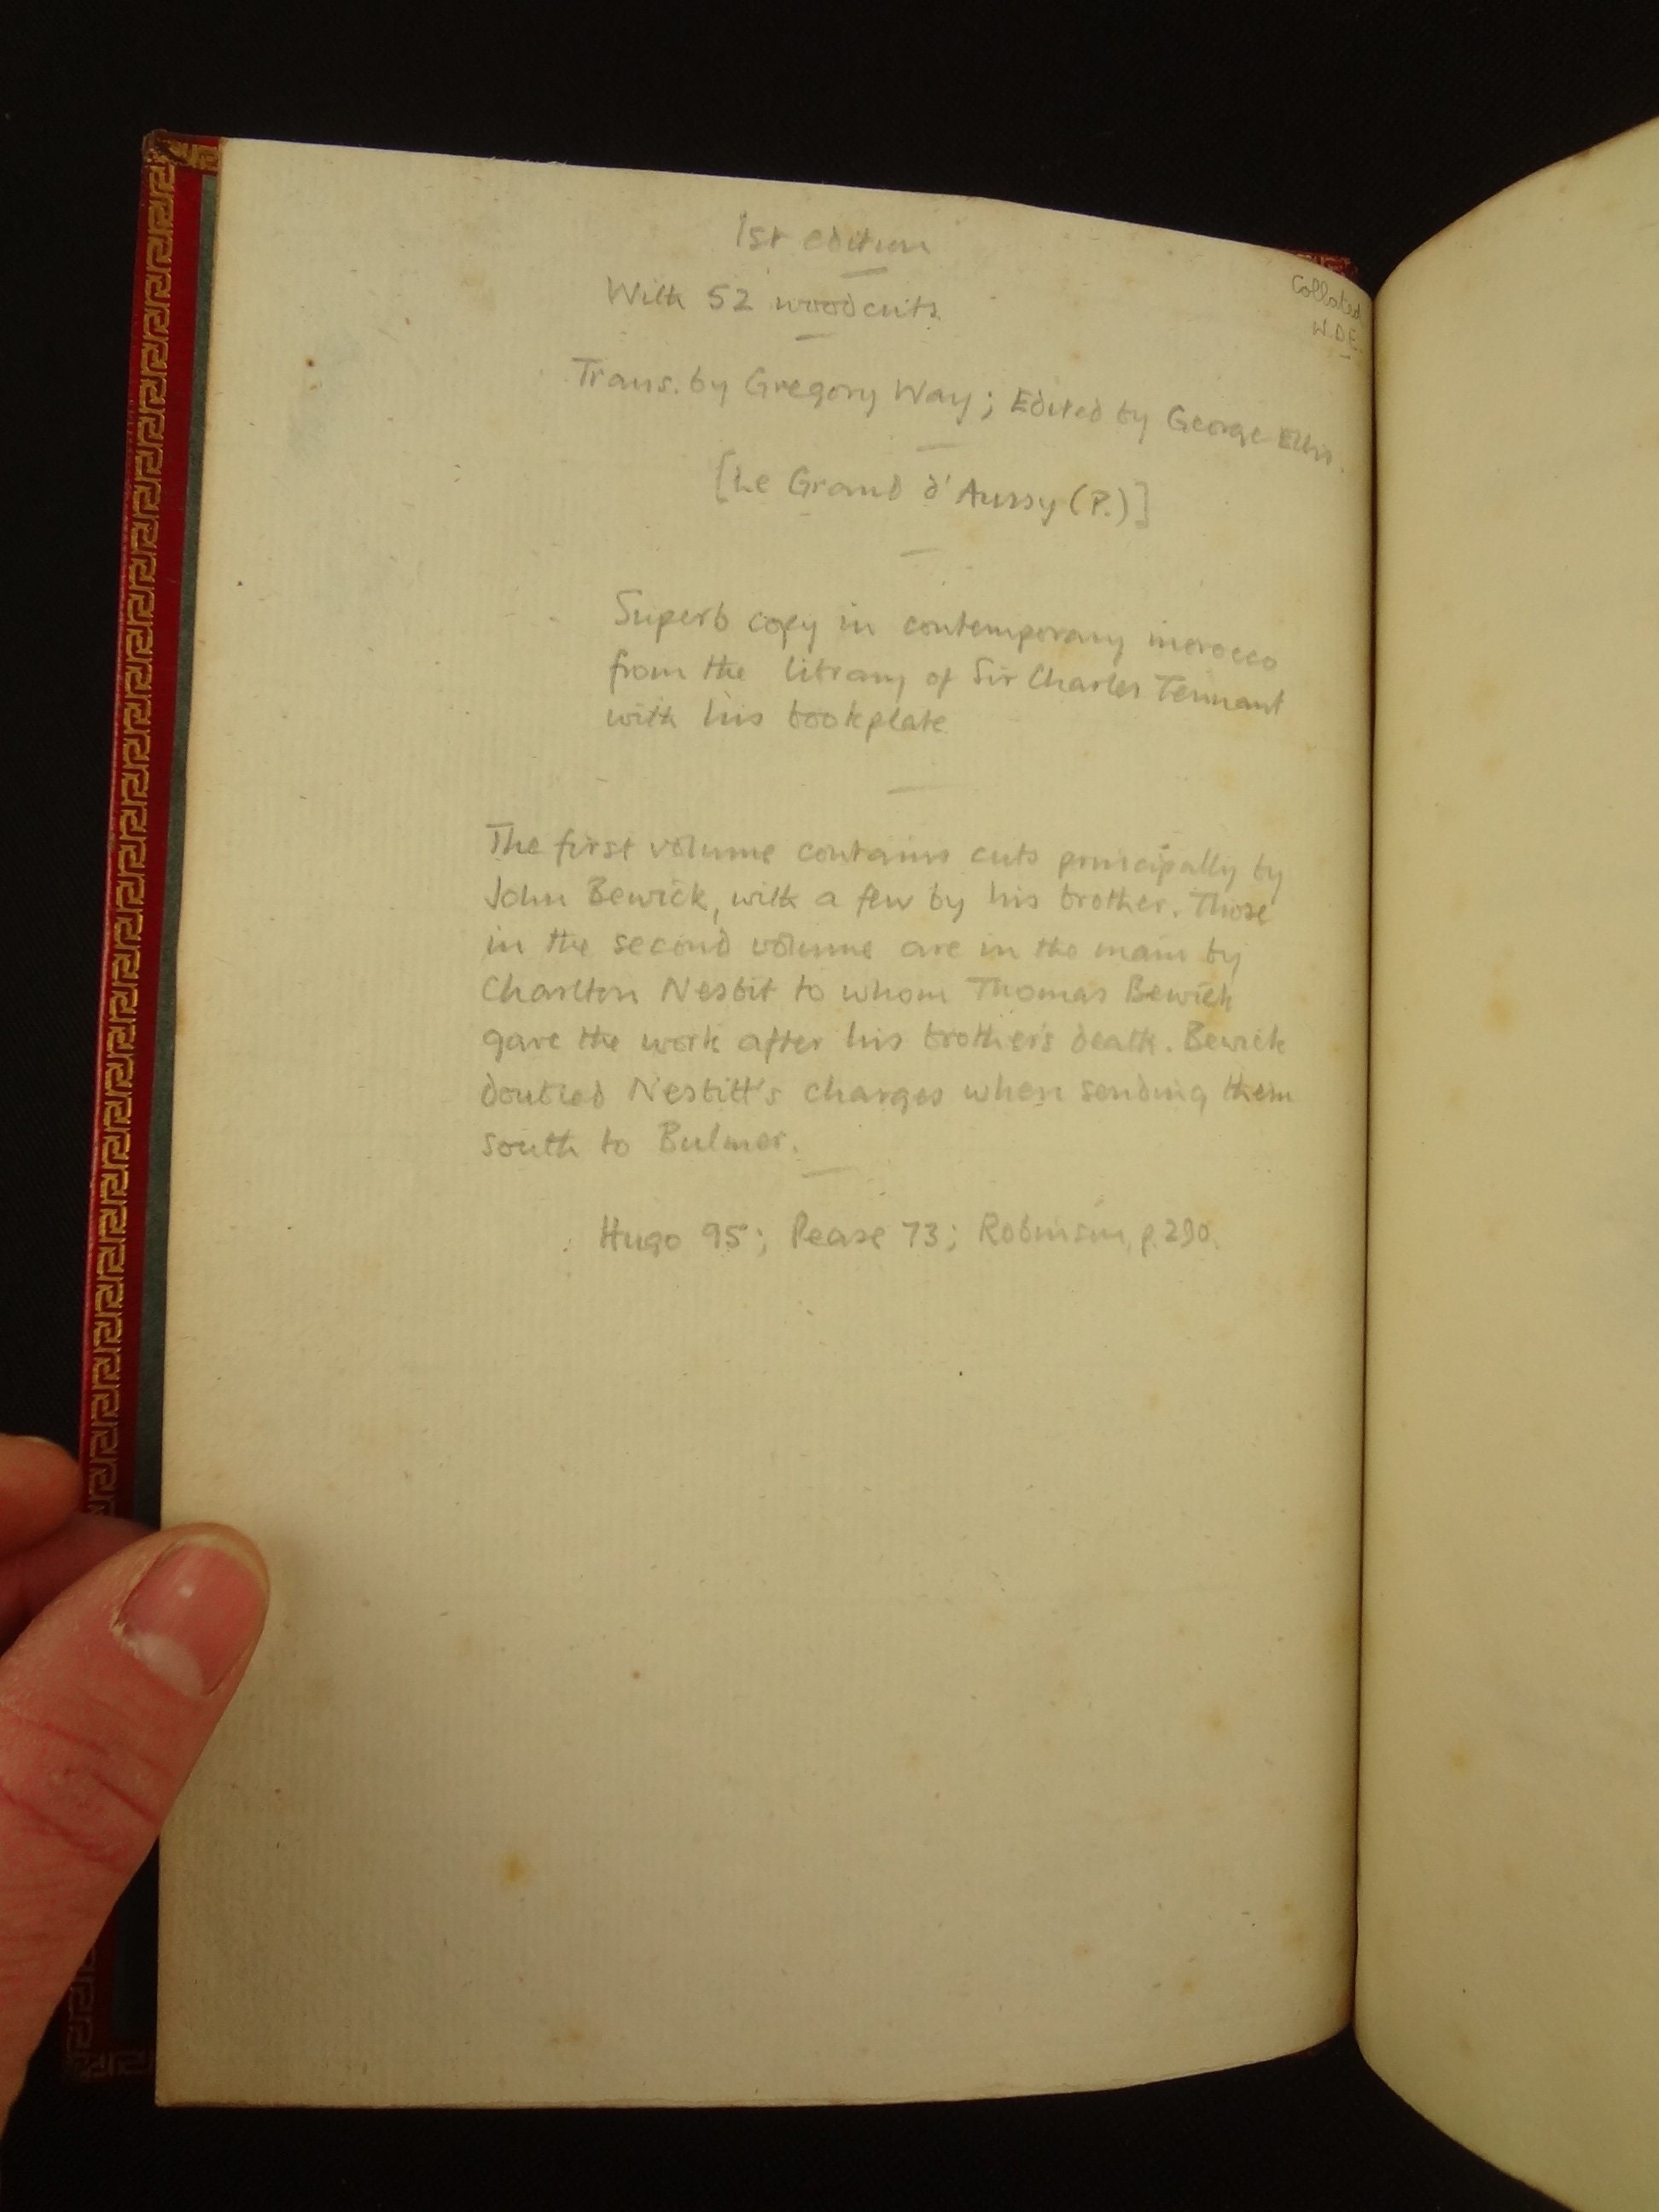 1st edition
With 52 woodcuts
Collated
W.D.E.
Trans. by Gregory Way; Edited by George Ellis.
[Le Grand d'Aussy (P.)]
Superb copy in contemporary morocco
from the library of Sir Charles Tennant
with his bookplate
The first volume contains cuts principally by
John Bewick, with a few by his brother. Those
in the second volume are in the main by
Charlton Nesbit to whom Thomas Bewick
gave the work after his brother's death. Bewick
doubled Nesbitt's charges when sending them
south to Bulmer.
Hugo 95; Pease 73; Robinson, p.290.